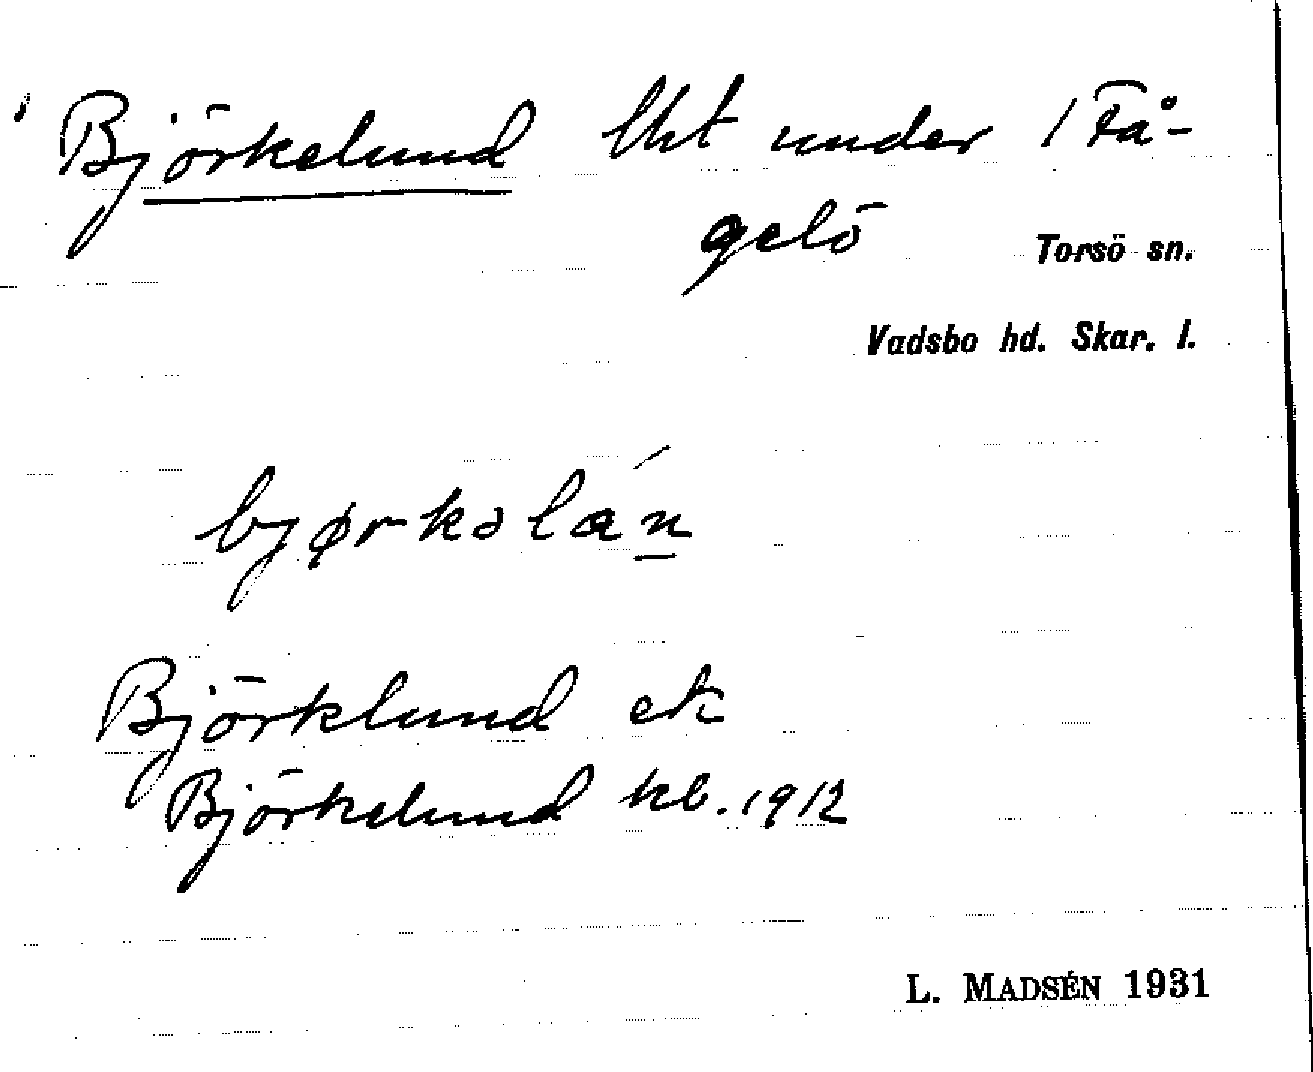 Björkelund lht under 1 Få-
gelö Torsö sn.
Vadsbo hd. Skar. l.
bjørkəlán
Björklund ek
Björkelund kb. 1912
L. MADSÉN 1931